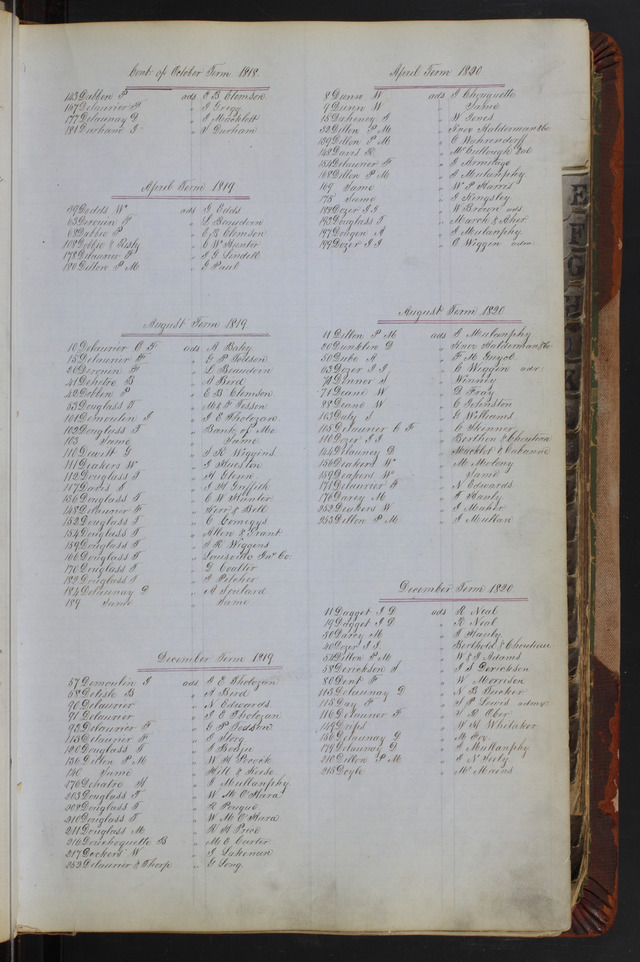 Cont. of October Term 1818.
143 Dabbon P ads E B Clemson
167 Delaurier F " J Gregg
177 Delaunay D " J Macklott
181 Durham J " V Durham
April Term 1819
39 Dodds W ads J Edds
65 Derouin F " L Beaudoin
68 Dabbie P " E B Clemson
108 Dobbie & Risly " C W Hunter
178 Delaurier F " J G Lindell
180 Dillon P M " G Paul
August Term 1819.
10 Delaurier C F ads A Baby
15 Delaurier F " E P Fosson
26 Derouin F " L Beaudoin
41 Dehetre B " A Bird
42 Dobbin P " E B Clemson
53 Douglass T " M & F Tesson
101 Demoulin J " J E Tholozan
102 Douglass T " Bank of Mo
103 Same " Same
110 Dewitt G " S R Wiggins
111 Deakers W " J Martin
112 Douglass T " H Glenn
117 Davis J " J H Griffith
136 Douglass T " C W Hunter
148 Delaurier F " Kerr & Bell
152 Douglass T " C Cemegys
154 Douglass T " Allen & Grant
159 Douglass T " S R Wiggins
166 Douglass T " Louisville Ins Co.
176 Douglass T " D Coulter
182 Douglass T " H Pilcher
184 Delaunay D " A Soulard
189 Same " Same
December Term 1819
57 Demoulin J ads J E Tholozan
58 Delisle B " A Bird
90 Delaurier " N Edwards
91 Delaurier " J E Tholozan
93 Delaurier F " E P Fosson
113 Delaurier F " C Shog
120 Douglass T " J Bodju
136 Dillon P M " W H Pocock
140 Same " Hill & Keese
176 Dehatre H " J Mullanphy
203 Douglass T " W M O'Hara
208 Douglass T " R Poague
210 Douglass T " W M O'Hara
211 Douglass M " R H Price
216 Duchoquette B " M E Carter
217 Deckers W " J Lakenan
252 Delaurier & Tharp " G Long
April Term 1820
8 Dunn W ads J Chouquette
9 Dunn W " Same
15 Daheney A " W Jones
52 Dillon P M " Knox Halderman & Co
139 Dillon P M " C Wahrendorff
148 Davis R " McCullough & al
154 Delaurier F " J Armitage
168 Dillon P M " J Mulanphy
169 Same " W P Harris
178 Same " J Kingsley
189 Dozer J J " H Brown adr.
193 Douglass T " March & Aher
197 Dongen A " J Mulanphy
199 Dozer J J " C Wiggin adr
August Term 1820
11 Dillon P M ads J Mulanphy
20 Dunklin D " Knox Halderman & Co
50 Dubo A " F M Guyol
65 Dozer J J " C Wiggin adr
70 Dinner S " Winney
71 Deane W " D Fray
98 Deane W " C Johnston
103 Daly J " G Williams
115 Delaurier C F " C Skinner
116 Dozer J J " Berthen & Chouteau
144 Delauney D " Macklot & Cabanne
156 Deakers W " M Melony
159 Deakers W " Same
171 Delaurier F " N Edwards
176 Darcy M " F Hanly
252 Deakers W " J Maher
253 Dillon P M " J Mullan
December Term 1820
11 Dagget J D ads R Neal
19 Dagget J D " R Neal
30 Darcy M " F Hanly
40 Dozer J J " Berthold & Chouteau
54 Dillon P M " W & J Adams
58 Derickson A " J S Derickson
80 Dent F " W Morrison
113 Delaunay D " N B Bucker
115 Day F " J P Lewis admr.
116 Delaurier F " V D Ober
149 Drips " W H Whitaker
156 Delaunay D " M Foy
179 Delaunay D " J Mullanphy
210 Dillon P M " A N Seely
215 Doyle " Mc Mains
E
F
G
H